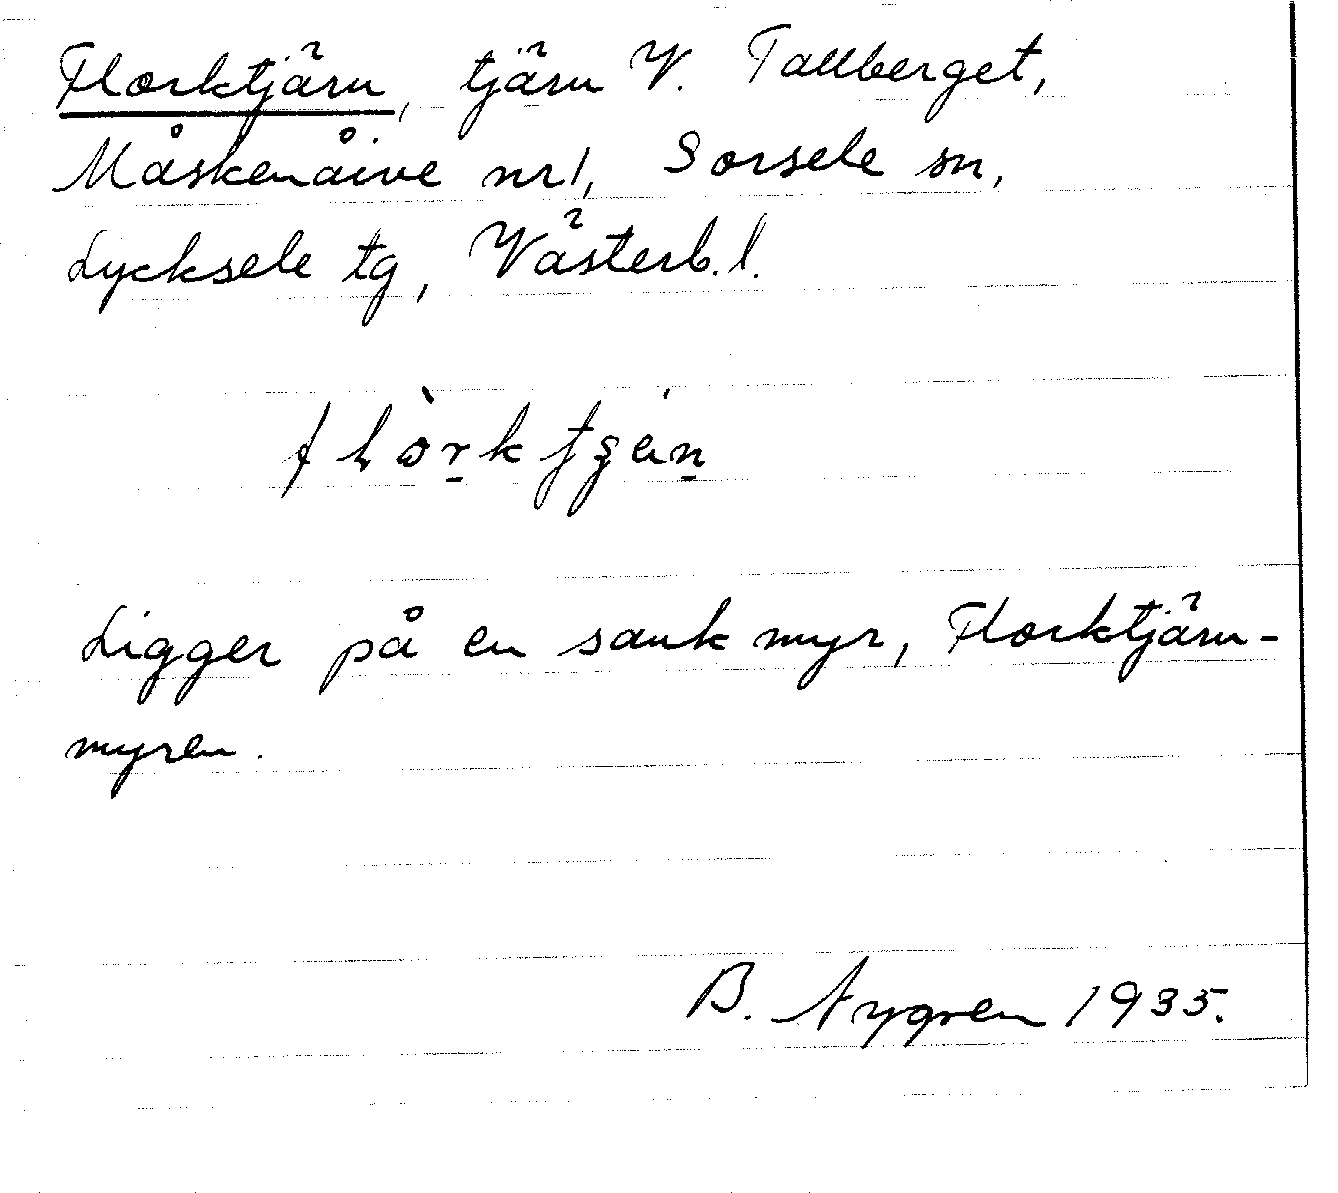 Florktjärn, tjärn V. Tallberget,
Måskenåive nr 1, Sorsele sn,
Lycksele tg, Västerb. l.
Ligger på en sank myr, Florktjärn-
myren.
B. Nygren 1935.